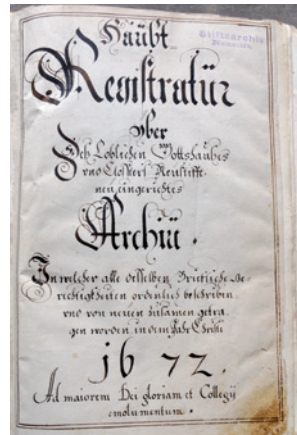 Haübt
Registratür
über
Deß Loblichen Gottshaußes
vnd Closters Neüstifft
neü eingerichtes
Archiu.
In welcher alle desselben Brieffliche Ge-
rechtigkheiten ordenlich beschriben
vnd von neuen zusamen getra
gen worden in dem Jahr Christi
1672.
Ad maiorem Dei gloriam et Collegij
emolumentum.
Stiftsarchiv